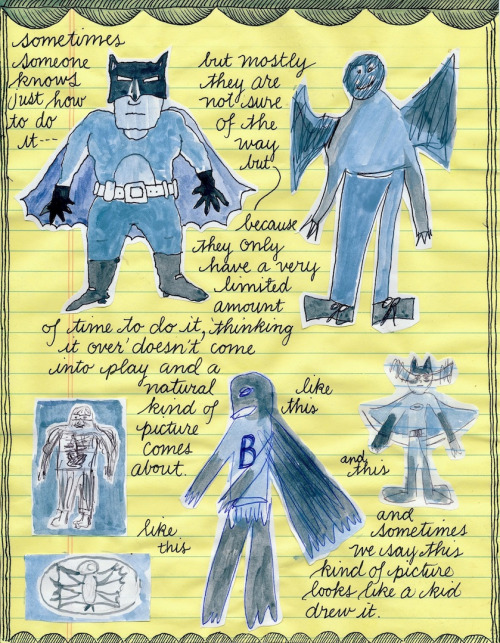 sometimes
someone
knows
just how
to do
it---
but mostly
they are
not sure
of the
way
but
because
they only
have a very
limited
amount
of time to do it, thinking
it over doesn't come
into play and a
natural
kind of
picture
comes
about.
like
this
B
and
this
like
this
and
sometimes
we say this
kind of picture
looks like a kid
drew it.